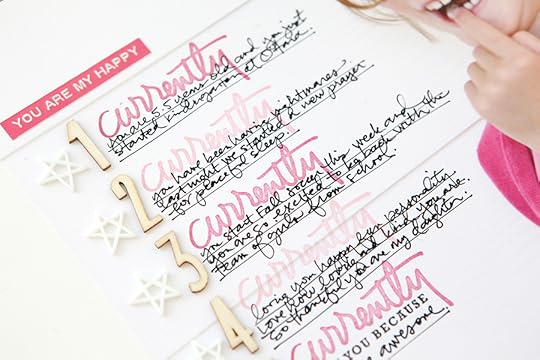 YOU ARE MY HAPPY
1
currently
you are 5.5 years old and you just
started kindergarten at
2
currently
you have been having nightmares
last night we started a new prayer
for peaceful sleep.
3
currently
you start Fall Soccer this week and
you are so excited to be back with the
team of girls from school.
4
currently
loving your happy fun personality
love how loving and kind you are.
So thankful you are my daughter.
currently
YOU BECAUSE
awesome.